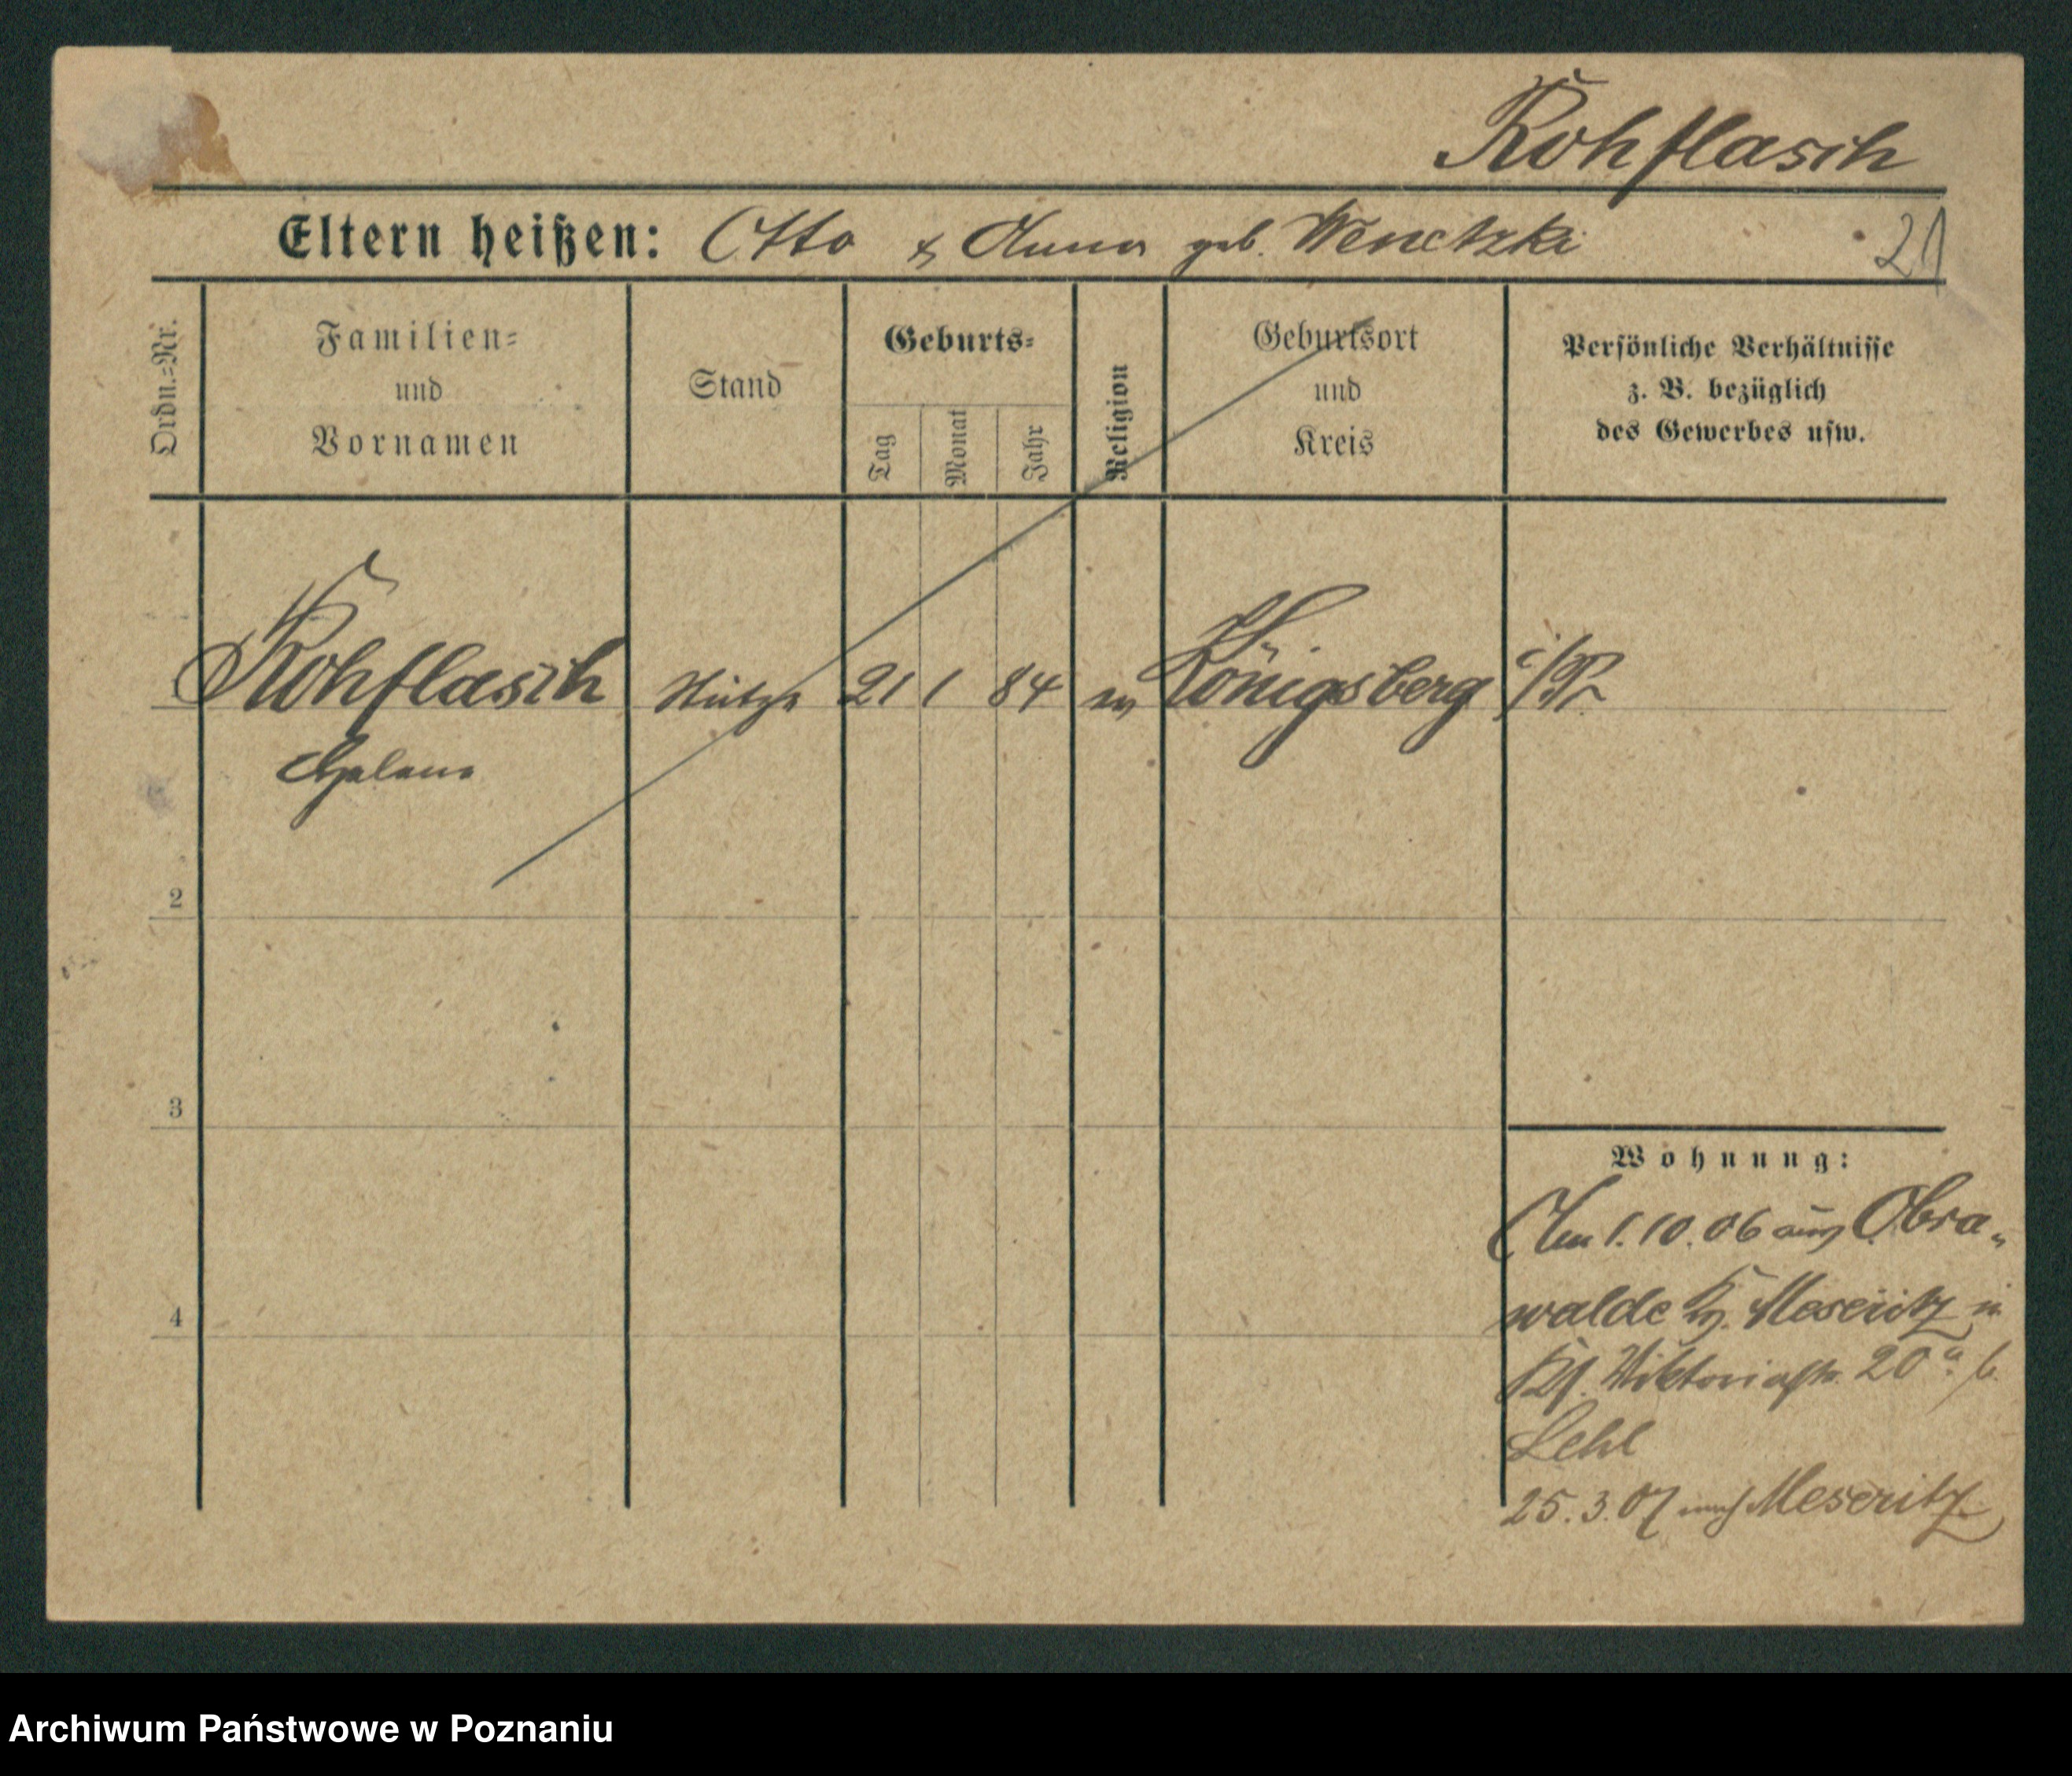 Rohflasch
Eltern heißen: Otto & Anna geb. Wenetzki
21
Ordn.=Nr.
Familien=
und
Vornamen
Stand
Geburts=
Tag
Monat
Jahr
Religion
Geburtsort
und
Kreis
Persönliche Verhältnisse
z. B. bezüglich
des Gewerbes usw.
Rohflasch Stütze 21 1 84 ev Königsberg i/Pr
Helene
2
3
4
Wohnung:
Am 1.10.06 aus Obra„
walde Kr. Meseritz in
Viktoriastr. 20a b.
Lehl
25.3.07 nach Meseritz
Archiwum Państwowe w Poznaniu